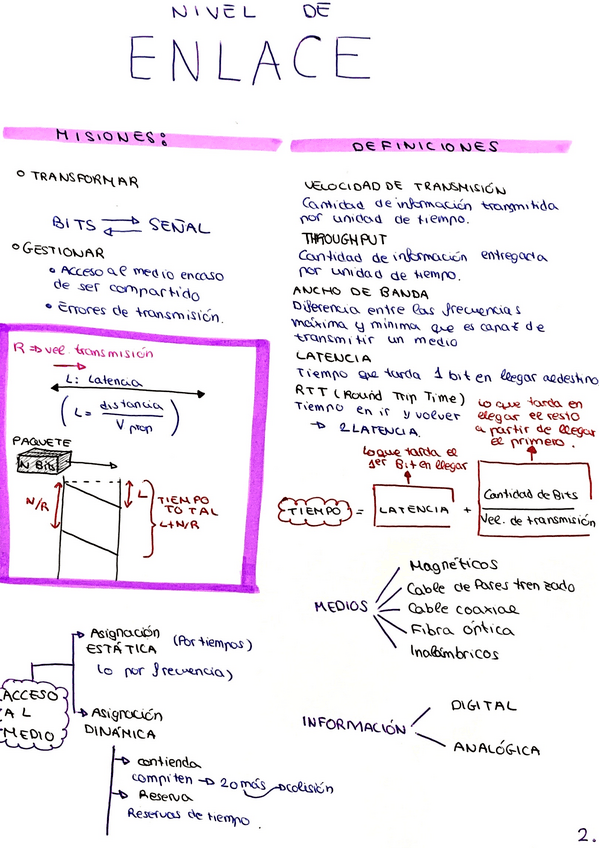 NIVEL DE
ENLACE
MISIONES:
TRANSFORMAR
BITS ⇄ SEÑAL
GESTIONAR
Acceso al medio encaso
de ser compartido
Errores de transmisión.
R ⇒ vel. transmisión
L: Latencia
(L = distancia / V prop)
PAQUETE
N Bits
N/R
L
TIEMPO
TOTAL
L+N/R
ACCESO
AL
MEDIO
→ Asignación (Por tiempos)
ESTÁTICA
(o por frecuencia)
→ Asignación
DINÁMICA
→ contienda
compiten → 2 o más → colisión
→ Reserva
Reservas de tiempo.
DEFINICIONES
VELOCIDAD DE TRANSMISIÓN
Cantidad de información transmitida
por unidad de tiempo.
THROUGHPUT
Cantidad de información entregada
por unidad de tiempo.
ANCHO DE BANDA
Diferencia entre las frecuencias
máxima y mínima que es capaz de
transmitir un medio
LATENCIA
Tiempo que tarda 1 bit en llegar aldestino
RTT (Round Trip Time)
Tiempo en ir y volver
→ 2 LATENCIA.
Lo que tarda en
llegar el resto
a partir de llegar
el primero.
Lo que tarda el
1er Bit en llegar
TIEMPO = LATENCIA + Cantidad de Bits / Vel. de transmisión
MEDIOS
Magnéticos
Cable de Pares trenzado
Cable coaxial
Fibra óptica
Inalámbricos
INFORMACIÓN
DIGITAL
ANALÓGICA
2.